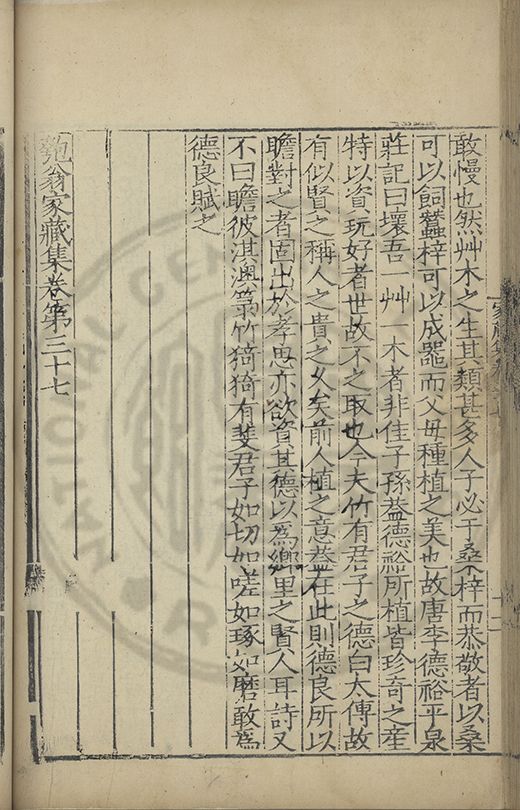 敢慢也然艸木之生其類甚多人子必于桑梓而恭敬者以桑
可以飼蠶梓可以成器而父母種植之美也故唐李德裕平泉
莊記曰壞吾一艸一木者非佳子孫葢德裕所植皆珍奇之産
特以資玩好者世故不之取也今夫竹有君子之德白太傳故
有似賢之稱人之貴之乆矣前人植之意葢在此則德良所以
瞻對之者固出於孝思亦欲資其德以爲鄉里之賢人耳詩又
不曰瞻彼淇澳菉竹猗猗有斐君子如切如嗟如琢如磨敢爲
德良賦之
匏翁家藏集卷第三十七